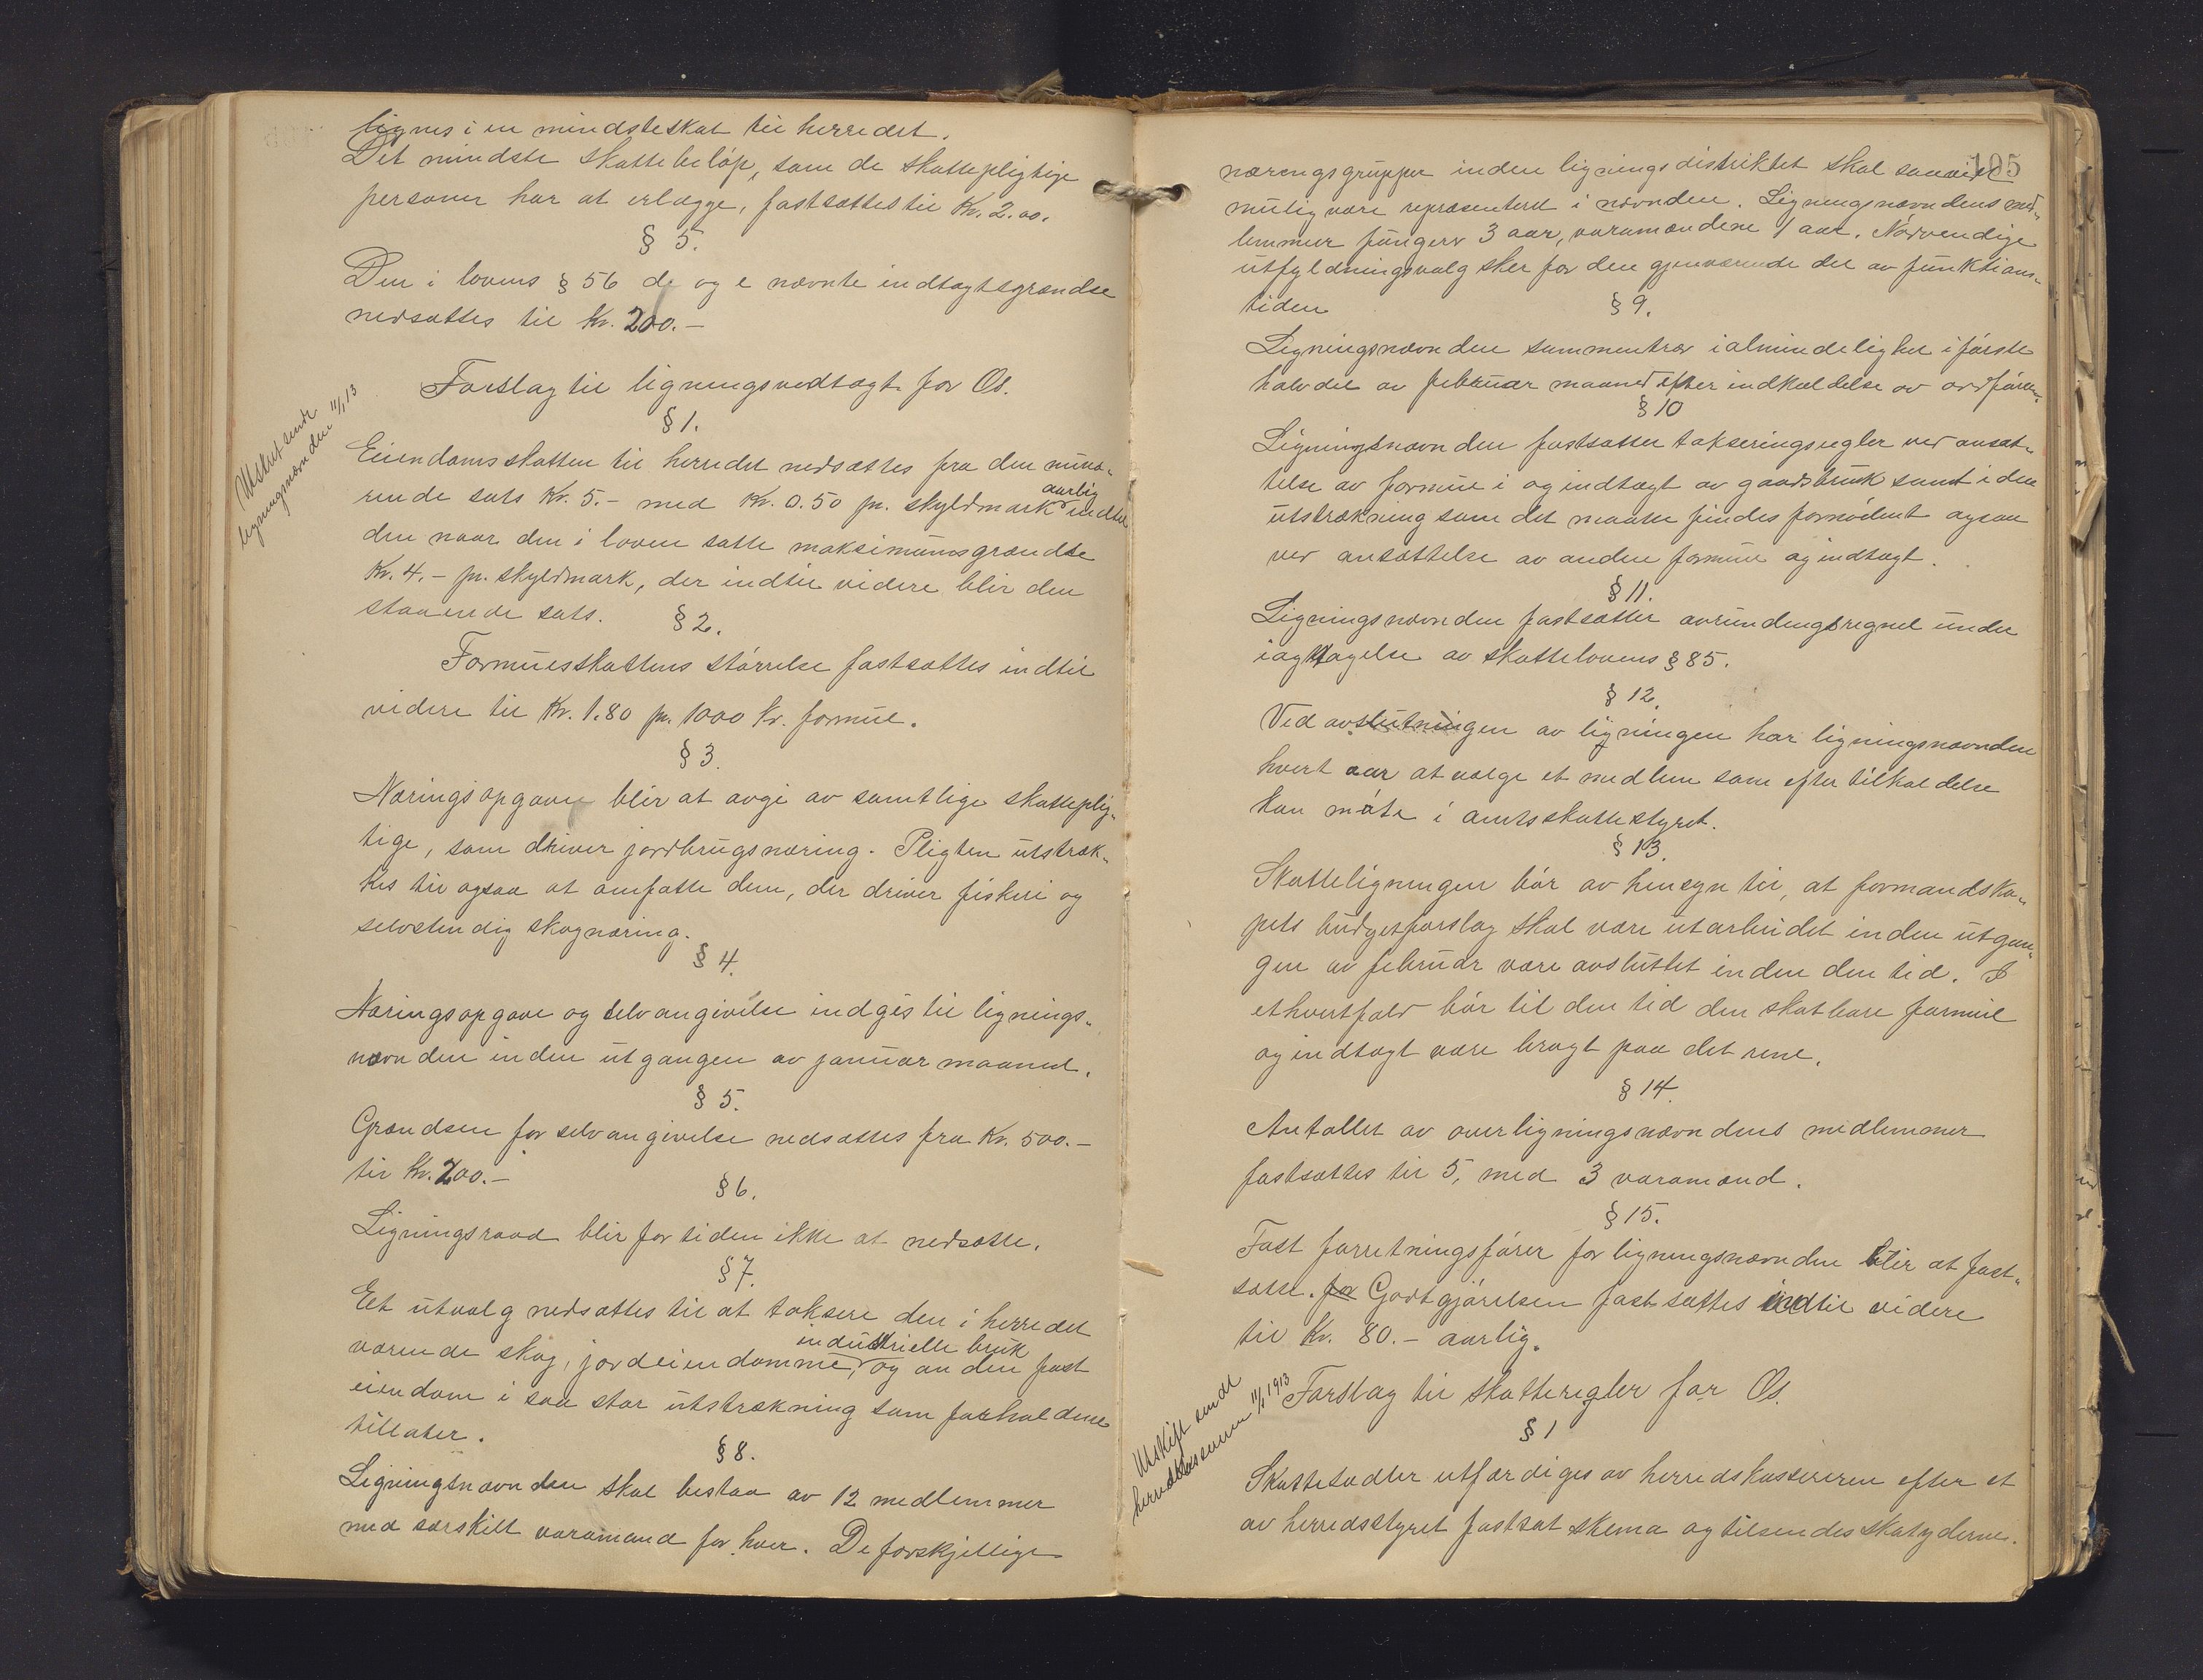 lignes i en mindsteskat til herredet.
Det mindste skattebeløp, som de skattepligtige
personer har at erlægge, fastsættes til Kr. 2.00.
§ 5.
Den i lovens § 56 d og e nævnte indtægtsgrændse
nedsættes til Kr. 200.-
Forslag til ligningsvedtægt for Os.
Utskrift sendt
ligningsnævnden 11/1 13
§ 1.
Eiendomsskatten til herredet nedsættes fra den nuvæ-
rende sats Kr. 5.- med Kr. 0.50 pr. skyldmark aarlig indtil
den naar den i loven satte maksimumsgrændse
Kr. 4.- pr. skyldmark, der indtil videre blir den
staaende sats.
§ 2.
Formuesskattens størrelse fastsættes indtil
videre til Kr. 1.80 pr. 1000 kr. formue.
§ 3.
Næringsopgave blir at avgi av samtlige skatteplig-
tige, som driver jordbrugsnæring. Pligten utstræk-
kes til ogsaa at omfatte dem, der driver fiskeri og
selvstendig skognæring.
§ 4.
Næringsopgave og selvangivelse indgis til lignings-
nævnden inden utgangen av januar maaned.
§ 5.
Grændsen for selvangivelse nedsættes fra Kr. 500.-
til Kr. 200.-
§ 6.
Ligningsraad blir for tiden ikke at nedsætte.
§ 7.
Eet utvalg nedsættes til at taksere den i herredet
værende skog, jordeiendomme, industrielle bruk og anden fast
eiendom i saa stor utstrækning som forholdene
tillater.
§ 8.
Ligningsnævnden skal bestaa av 12 medlemmer
med særskilt varamand for hver. De forskjellige
105
næringsgrupper inden ligningsdistriktet skal saavidt
mulig være repræsenteret i nævnden. Ligningsnævndens med-
lemmer fungerer 3 aar, varamændene 1 aar. Nødvendige
utfyldningsvalg sker for den gjenværende del av funktions-
tiden
§ 9.
Ligningsnævnden sammentræ i almindelighet i første
halvdel av februar maaned efter indkaldelse av ordføren.
§ 10
Ligningsnævnden fastsætter takseringsregler ved ansæt-
telse av formue i og indtægt av gaardsbruk samt i den
utstrækning som det maatte findes fornødent ogsaa
ved ansættelse av anden formue og indtægt.
§ 11.
Ligningsnævnden fastsætter avrundingsregnel under
iagttagelse av skattelovens § 85.
§ 12.
Ved avslutningen av ligningen har ligningsnævnden
hvert aar at vælge et medlem som efter tilkaldelse
kan møte i amtsskattestyret.
§ 13.
Skatteligningen bør av hensyn til, at formandska-
pets budgetforslag skal være utarbeidet inden utgan-
gen av februar være avsluttet inden den tid. I
ethvertfald bør til den tid den skatbare formue
og indtægt være bragt paa det rene.
§ 14.
Antallet av overligningsnævndens medlemmer
fastsættes til 5, med 3 varamænd.
§ 15.
Fast forretningsfører for ligningsnævnden blir at fast-
sætte. for Godtgjørelsen fastsættes indtil videre
til Kr. 80.- aarlig.
Forslag til skatteregler for Os.
Utskrift sendt
herredskassereren 11/1 1913
§ 1
Skattesedler utfærdiges av herredskassereren efter et
av herredsstyret fastsat skema og tilsendes skatyderne.